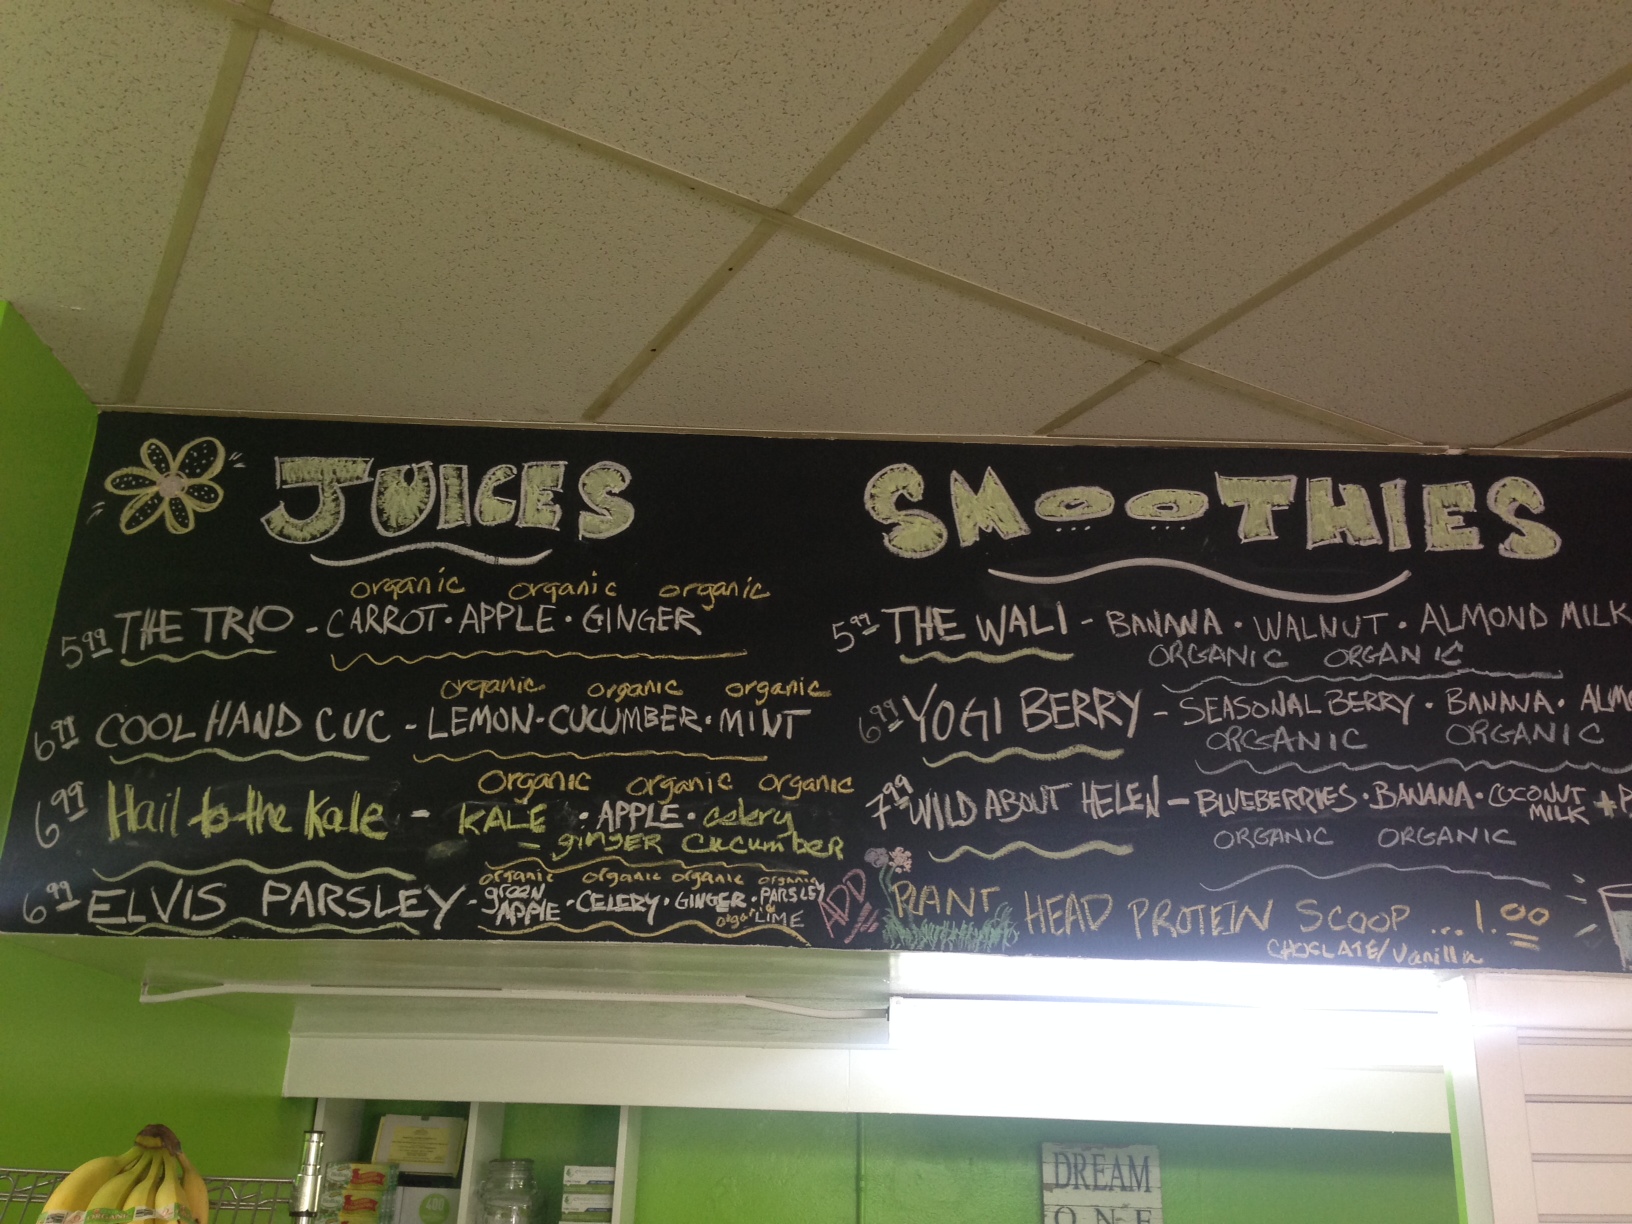 JUICES
organic organic organic
5.99 THE TRIO - CARROT · APPLE · GINGER
organic organic organic
6.99 COOL HAND CUC - LEMON · CUCUMBER · MINT
Organic organic organic
6.99 Hail to the Kale - KALE · APPLE · celery
- ginger cucumber
organic organic organic organic
6.99 ELVIS PARSLEY - green APPLE · CELERY · GINGER · PARSLEY
organic LIME
SMOOTHIES
5.99 THE WALI - BANANA · WALNUT · ALMOND MILK
ORGANIC ORGANIC
6.99 YOGI BERRY - SEASONAL BERRY · BANANA · ALM
ORGANIC ORGANIC
7.99 WILD ABOUT HELEN - BLUEBERRIES · BANANA · COCONUT MILK + P
ORGANIC ORGANIC
ADD PLANT HEAD PROTEIN SCOOP ... 1.00
CHOCLATE/Vanilla
DREAM
ONE
ORGANIC
400